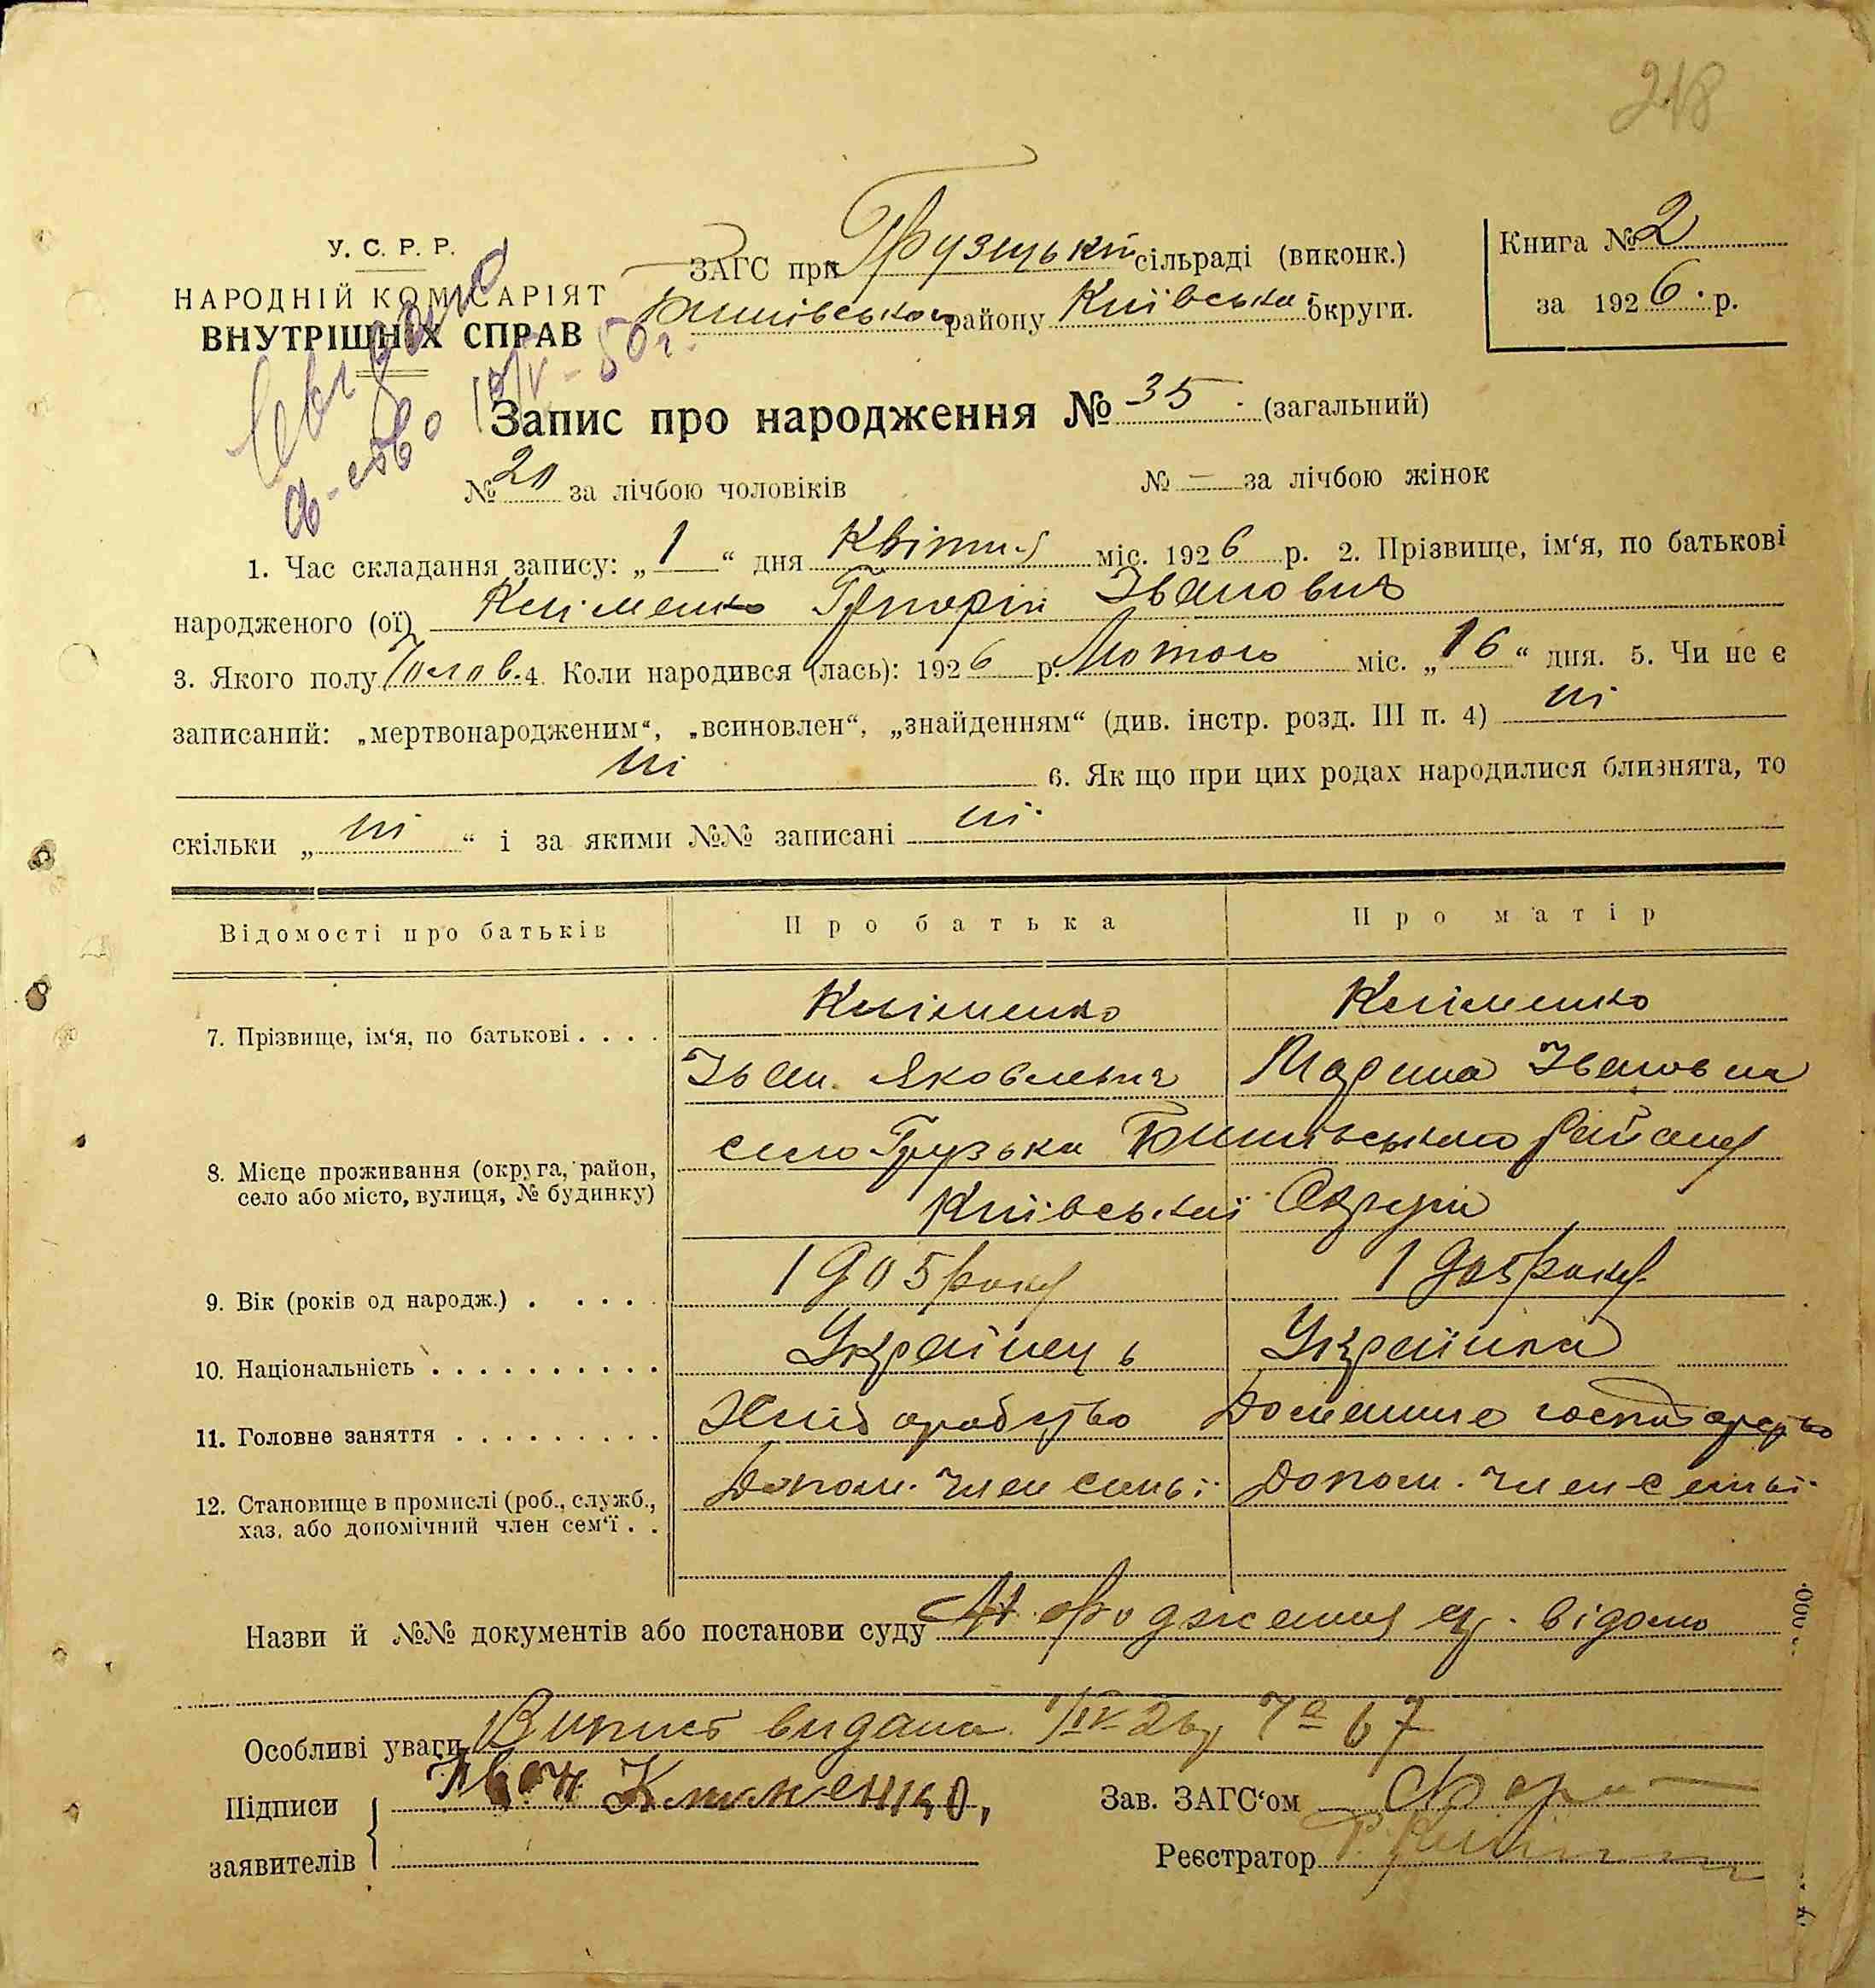 218
У. С. Р. Р.
НАРОДНІЙ КОМІСАРІЯТ
ВНУТРІШНІХ СПРАВ
ЗАГС при Грузській сільраді (виконк.)
району Київської округи.
Книга № 2
за 1926 р.
Запис про народження № 35. (загальний)
№ 20 за лічбою чоловіків № — за лічбою жінок
1. Час складання запису: „1“ дня Квітня міс. 1926 р. 2. Прізвище, ім‘я, по батькові
народженого (ої) Кліменко Григорій Іванович
3. Якого полу Чолов. 4. Коли народився (лась): 1926 р. Лютого міс. „16“ дня. 5. Чи не є
записаний: „мертвонародженим“, „всиновлен“, „знайденням“ (див. інстр. розд. III п. 4) ні
ні 6. Як що при цих родах народилися близнята, то
скільки „ні“ і за якими №№ записані ні
Відомості про батьків Про батька Про матір
7. Прізвище, ім‘я, по батькові . . . . Кліменко Кліменко
Іван Яковлевич Марина Івановна
8. Місце проживання (округа, район, село Грузька району
село або місто, вулиця, № будинку) Київської Округи
9. Вік (років од народж.) . . . . . 1905 року 1905 року
10. Національність . . . . . . . . . . Українець Українка
11. Головне заняття . . . . . . . . . Хліборобство Домашнє господарство
12. Становище в промислі (роб., служб., Допом. член семьї Допом. член семьї
хаз. або допомічний член сем‘ї . .
Назви й №№ документів або постанови суду відомо
Особливі уваги Випись видана 67
Підписи Иван Клименко,
заявителів
Зав. ЗАГС‘ом
Реєстратор